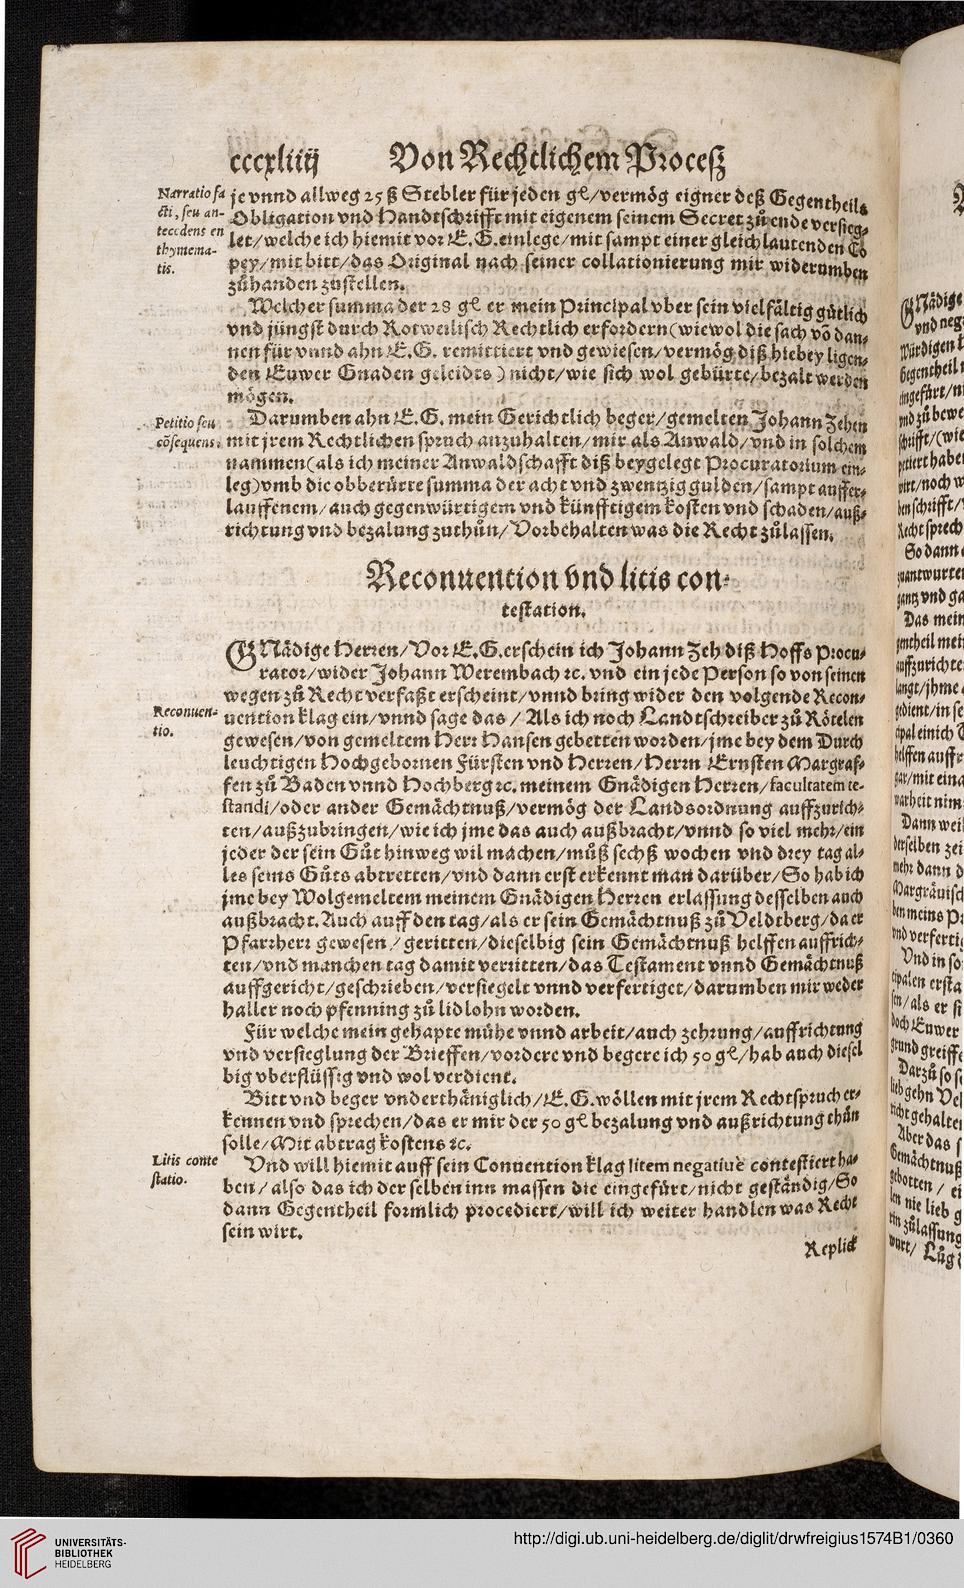 cccxliiij Von Rechtlichem Proceß
Narratio fa
cti, seu an-
tecedens en
thymema-
tis.
je vnnd allweg 25 ß Stebler für jeden gl/vermög eigner deß Gegentheils
Obligation vnd Handtschrifft mit eigenem seinem Secret zů ende versieg-
let/welche ich hiemit vor E.G. einlege/mit sampt einer gleich lautenden Co
pey/mit bitt/das Original nach seiner collationierung mir widerumben
zůhanden zůstellen.
Welcher summa der 28 gl er mein Principal vber sein vielfältig gütlich
vnd jüngst durch Rotweilisch Rechtlich erfordern (wiewol die sach võ dan-
nen für vnnd ahn E.G. remittiert vnd gewiesen/vermög diß hiebey ligen-
den Euwer Gnaden geleidts) nicht/wie sich wol gebürte/bezalt werden
mögen.
Petitio seu
cõsequens.
Darumben ahn E.G. mein Gerichtlich beger/gemelten Johann Zehen
mit jrem Rechtlichen spruch anzuhalten/mir als Anwald/vnd in solchem
nammen (als ich meiner Anwaldschafft diß beygelegt Procuratorium ein-
leg) vmb die obberürte summa der acht vnd zwentzig gulden/sampt auffer-
lauffenem/auch gegenwürtigem vnd künfftigem kosten vnd schaden/auß-
richtung vnd bezalung zuthůn/Vorbehalten was die Recht zůlassen.
Reconuention vnd litis con-
testation.
GNädige Herren/Vor E.G. erschein ich Johann Zeh diß Hoffs Procu-
rator/wider Johann Werembach ꝛc. vnd ein jede Person so von seinen
wegen zů Recht verfaßt erscheint/vnnd bring wider den volgende Recon-
Reconuen-
tio.
uention klag ein/vnnd sage das/Als ich noch Landtschreiber zů Rötelen
gewesen/von gemeltem Herr Hansen gebetten worden/jme bey dem Durch
leuchtigen Hochgebornen Fürsten vnd Herren/Herrn Ernsten Margraf-
fen zů Baden vnnd Hochberg ꝛc. meinem Gnädigen Herren/facultatem te-
standi/oder ander Gemächtnuß/vermög der Landsordnung auffzurich-
ten/außzubringen/wie ich jme das auch außbracht/vnnd so viel mehr/ein
jeder der sein Gůt hinweg wil machen/můß sechß wochen vnd drey tag al-
les seins Gůts abtretten/vnd dann erst erkennt man darüber/So hab ich
jme bey Wolgemeltem meinem Gnädigen Herren erlassung desselben auch
außbracht. Auch auff den tag/als er sein Gemächtnuß zů Veldtberg/da er
Pfarrherr gewesen/geritten/dieselbig sein Gemächtnuß helffen auffrich-
ten/vnd manchen tag damit veritten/das Testament vnnd Gemächtnuß
auffgericht/geschrieben/versiegelt vnnd verfertiget/darumben mir weder
haller noch pfenning zů lidlohn worden.
Für welche mein gehapte mühe vnnd arbeit/auch zehrung/auffrichtung
vnd versieglung der Brieffen/vordere vnd begere ich 50 gl/hab auch diesel
big vberflüssig vnd wol verdient.
Bitt vnd beger vnderthäniglich/E.G. wöllen mit jrem Rechtspruch er-
kennen vnd sprechen/das er mir der 50 gl bezalung vnd außrichtung thůn
solle/Mit abtrag kostens ꝛc.
Litis conte
statio.
Vnd will hiemit auff sein Conuention klag litem negatiuè contestiert ha-
ben/also das ich der selben inn massen die eingefürt/nicht geständig/So
dann Gegentheil formlich procediert/will ich weiter handlen was Recht
sein wirt.
Replick
UNIVERSITÄTS-
BIBLIOTHEK
HEIDELBERG
http://digi.ub.uni-heidelberg.de/diglit/drwfreigius1574B1/0360